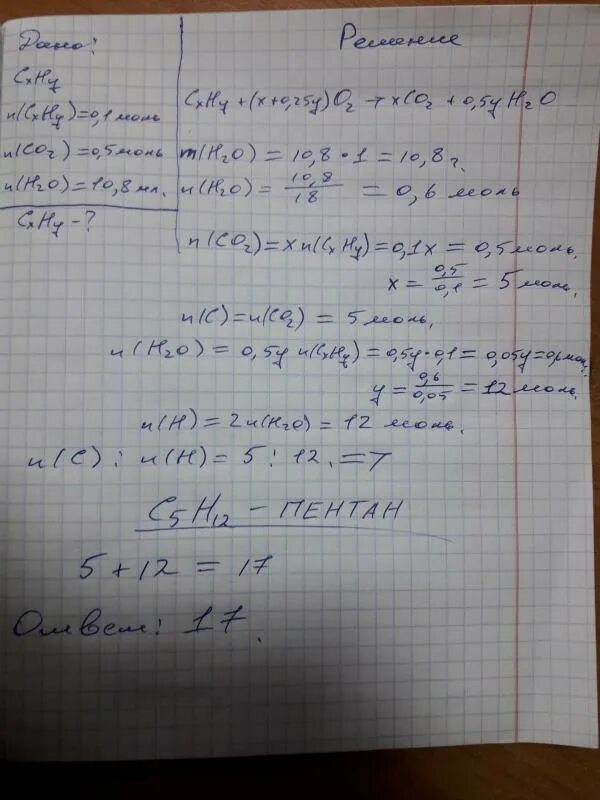 Дано:
CxHy
n(CxHy)=0,1 моль
n(CO2)=0,5 моль
n(H2O)=10,8 мл.
CxHy - ?
Решение
CxHy + (x+0,25y)O2 → xCO2 + 0,5y H2O
m(H2O) = 10,8 • 1 = 10,8 г.
n(H2O) = 10,8/18 = 0,6 моль
n(CO2) = x n(CxHy) = 0,1x = 0,5 моль.
x = 0,5/0,1 = 5 моль.
n(C) = n(CO2) = 5 моль.
n(H2O) = 0,5y n(CxHy) = 0,5y • 0,1 = 0,05y =
y = 0,6/0,05 = 12 моль.
n(H) = 2n(H2O) = 12 моль.
n(C) : n(H) = 5 : 12. =>
C5H12 - ПЕНТАН
5 + 12 = 17
Ответ: 17.